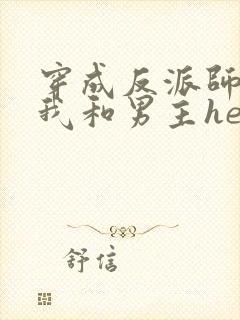 穿成反派師
我和男主he
舒信